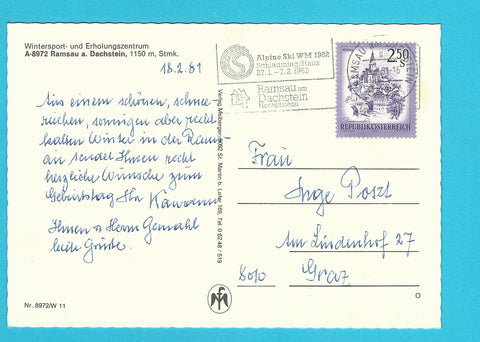 Wintersport- und Erholungszentrum
A-8972 Ramsau a. Dachstein, 1150 m, Stmk.
18.2.81
Aus einem schönen, schnee-
reichen, sonnigen aber recht
kalten Winter in der Rams-
au sendet Ihnen recht
herzliche Wünsche zum
Geburtstag Ihr
Ihnen u. Herrn Gemahl
liebe Grüße.
Nr. 8972/W 11
Alpine Ski WM 1982
Schladming/Haus
27.1. - 7.2.1982
Ramsau am
Dachstein
Hochplateau
RAMSAU AM
2.50 S
REPUBLIK ÖSTERREICH
Frau
Inge Poszt
Am Lindenhof 27
8010 Graz